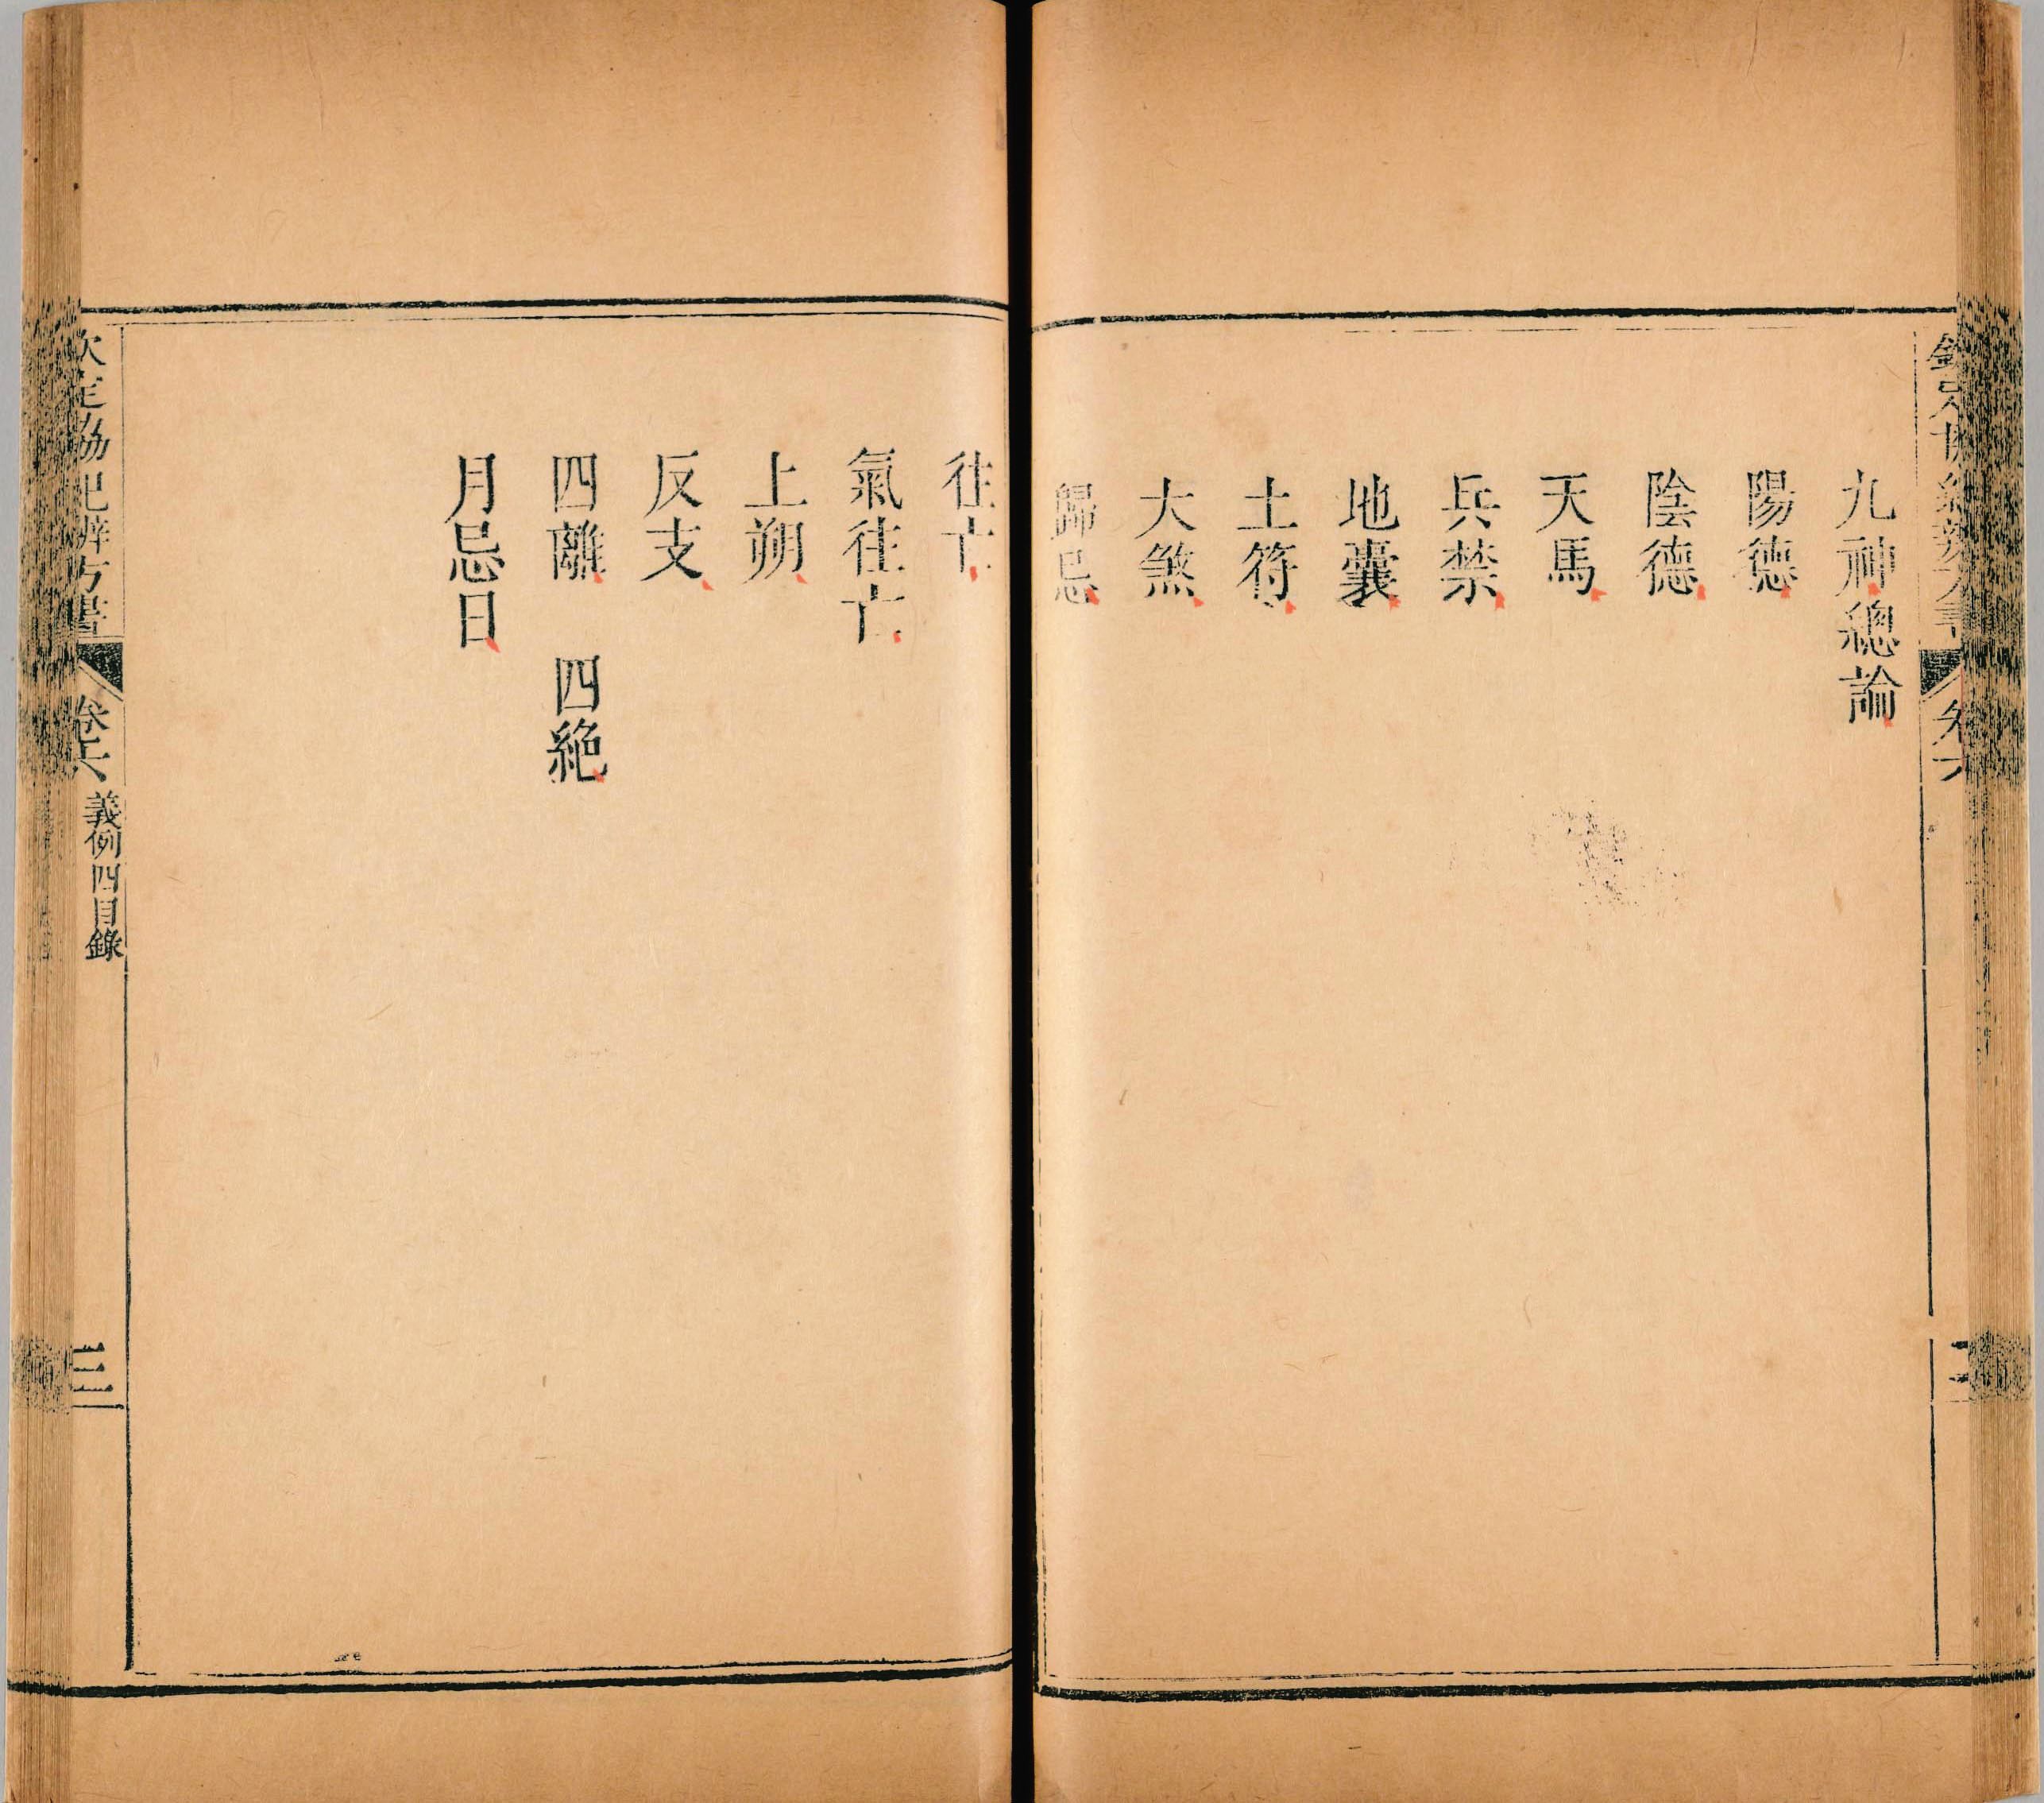 九神總論
陽德
陰德
天馬
兵禁
地囊
土符
大煞
歸忌
往亡
氣往亡
上朔
反支
四離　四絶
月忌日
欽定協紀辨方書　卷六　義例四目錄　三